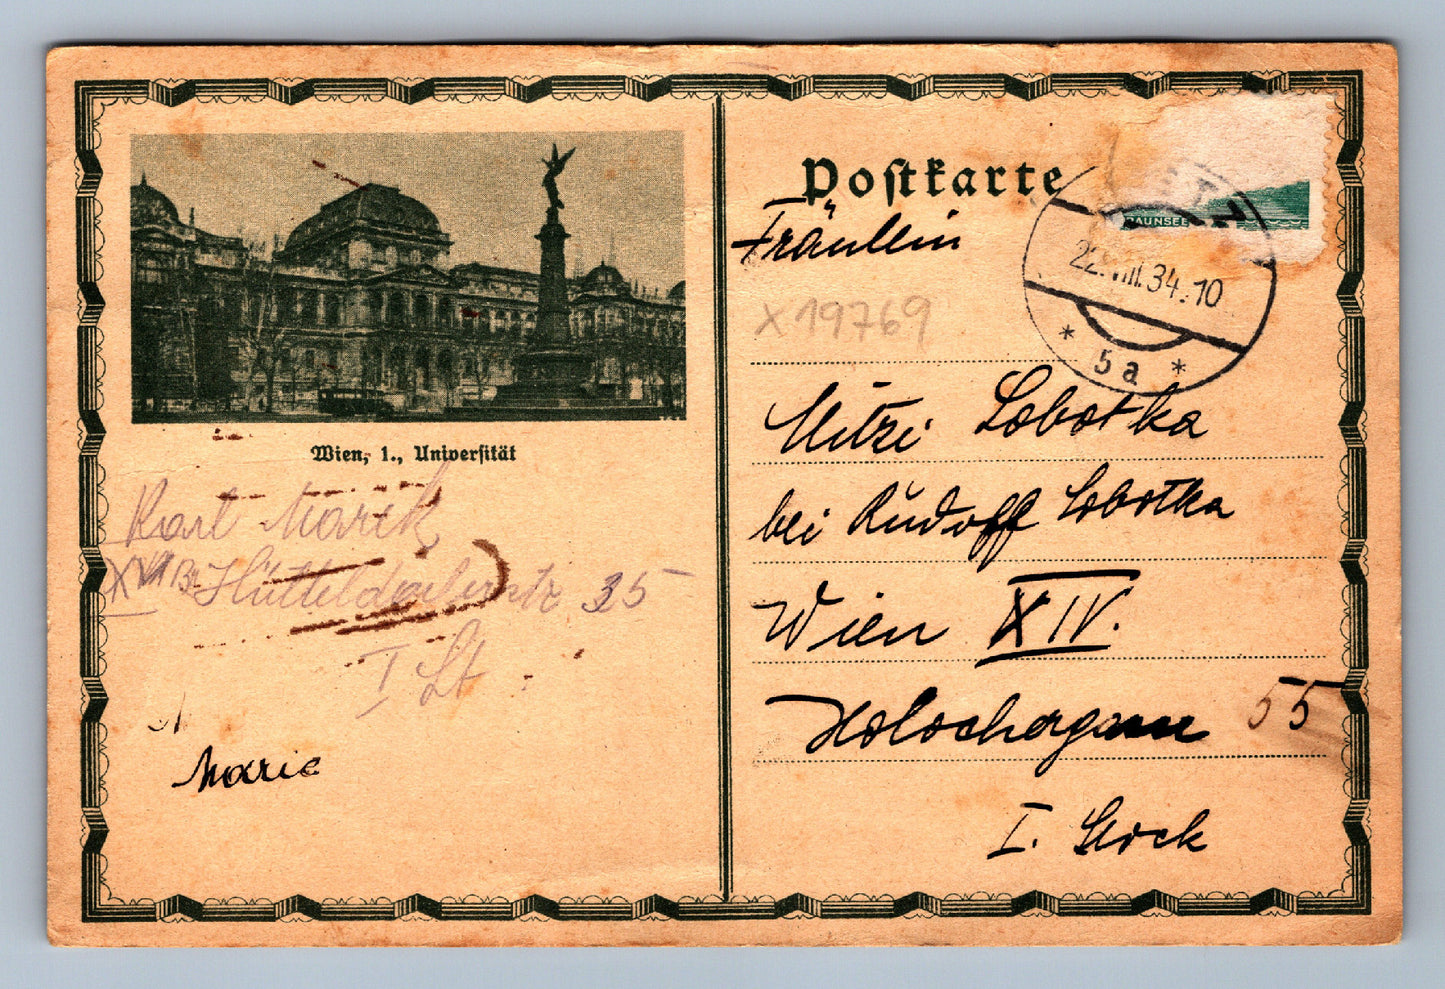 Wien, 1., Universität
Karl Marek
XVII Hütteldorferstr 35
I St
Marie
Postkarte
Fräulein
X19769
Mitzi Lobotka
bei Rudolf Lobotka
Wien XIV.
Holochergasse 55
I. Stock
AUNSEE
22.VIII.34.10
* 5a *